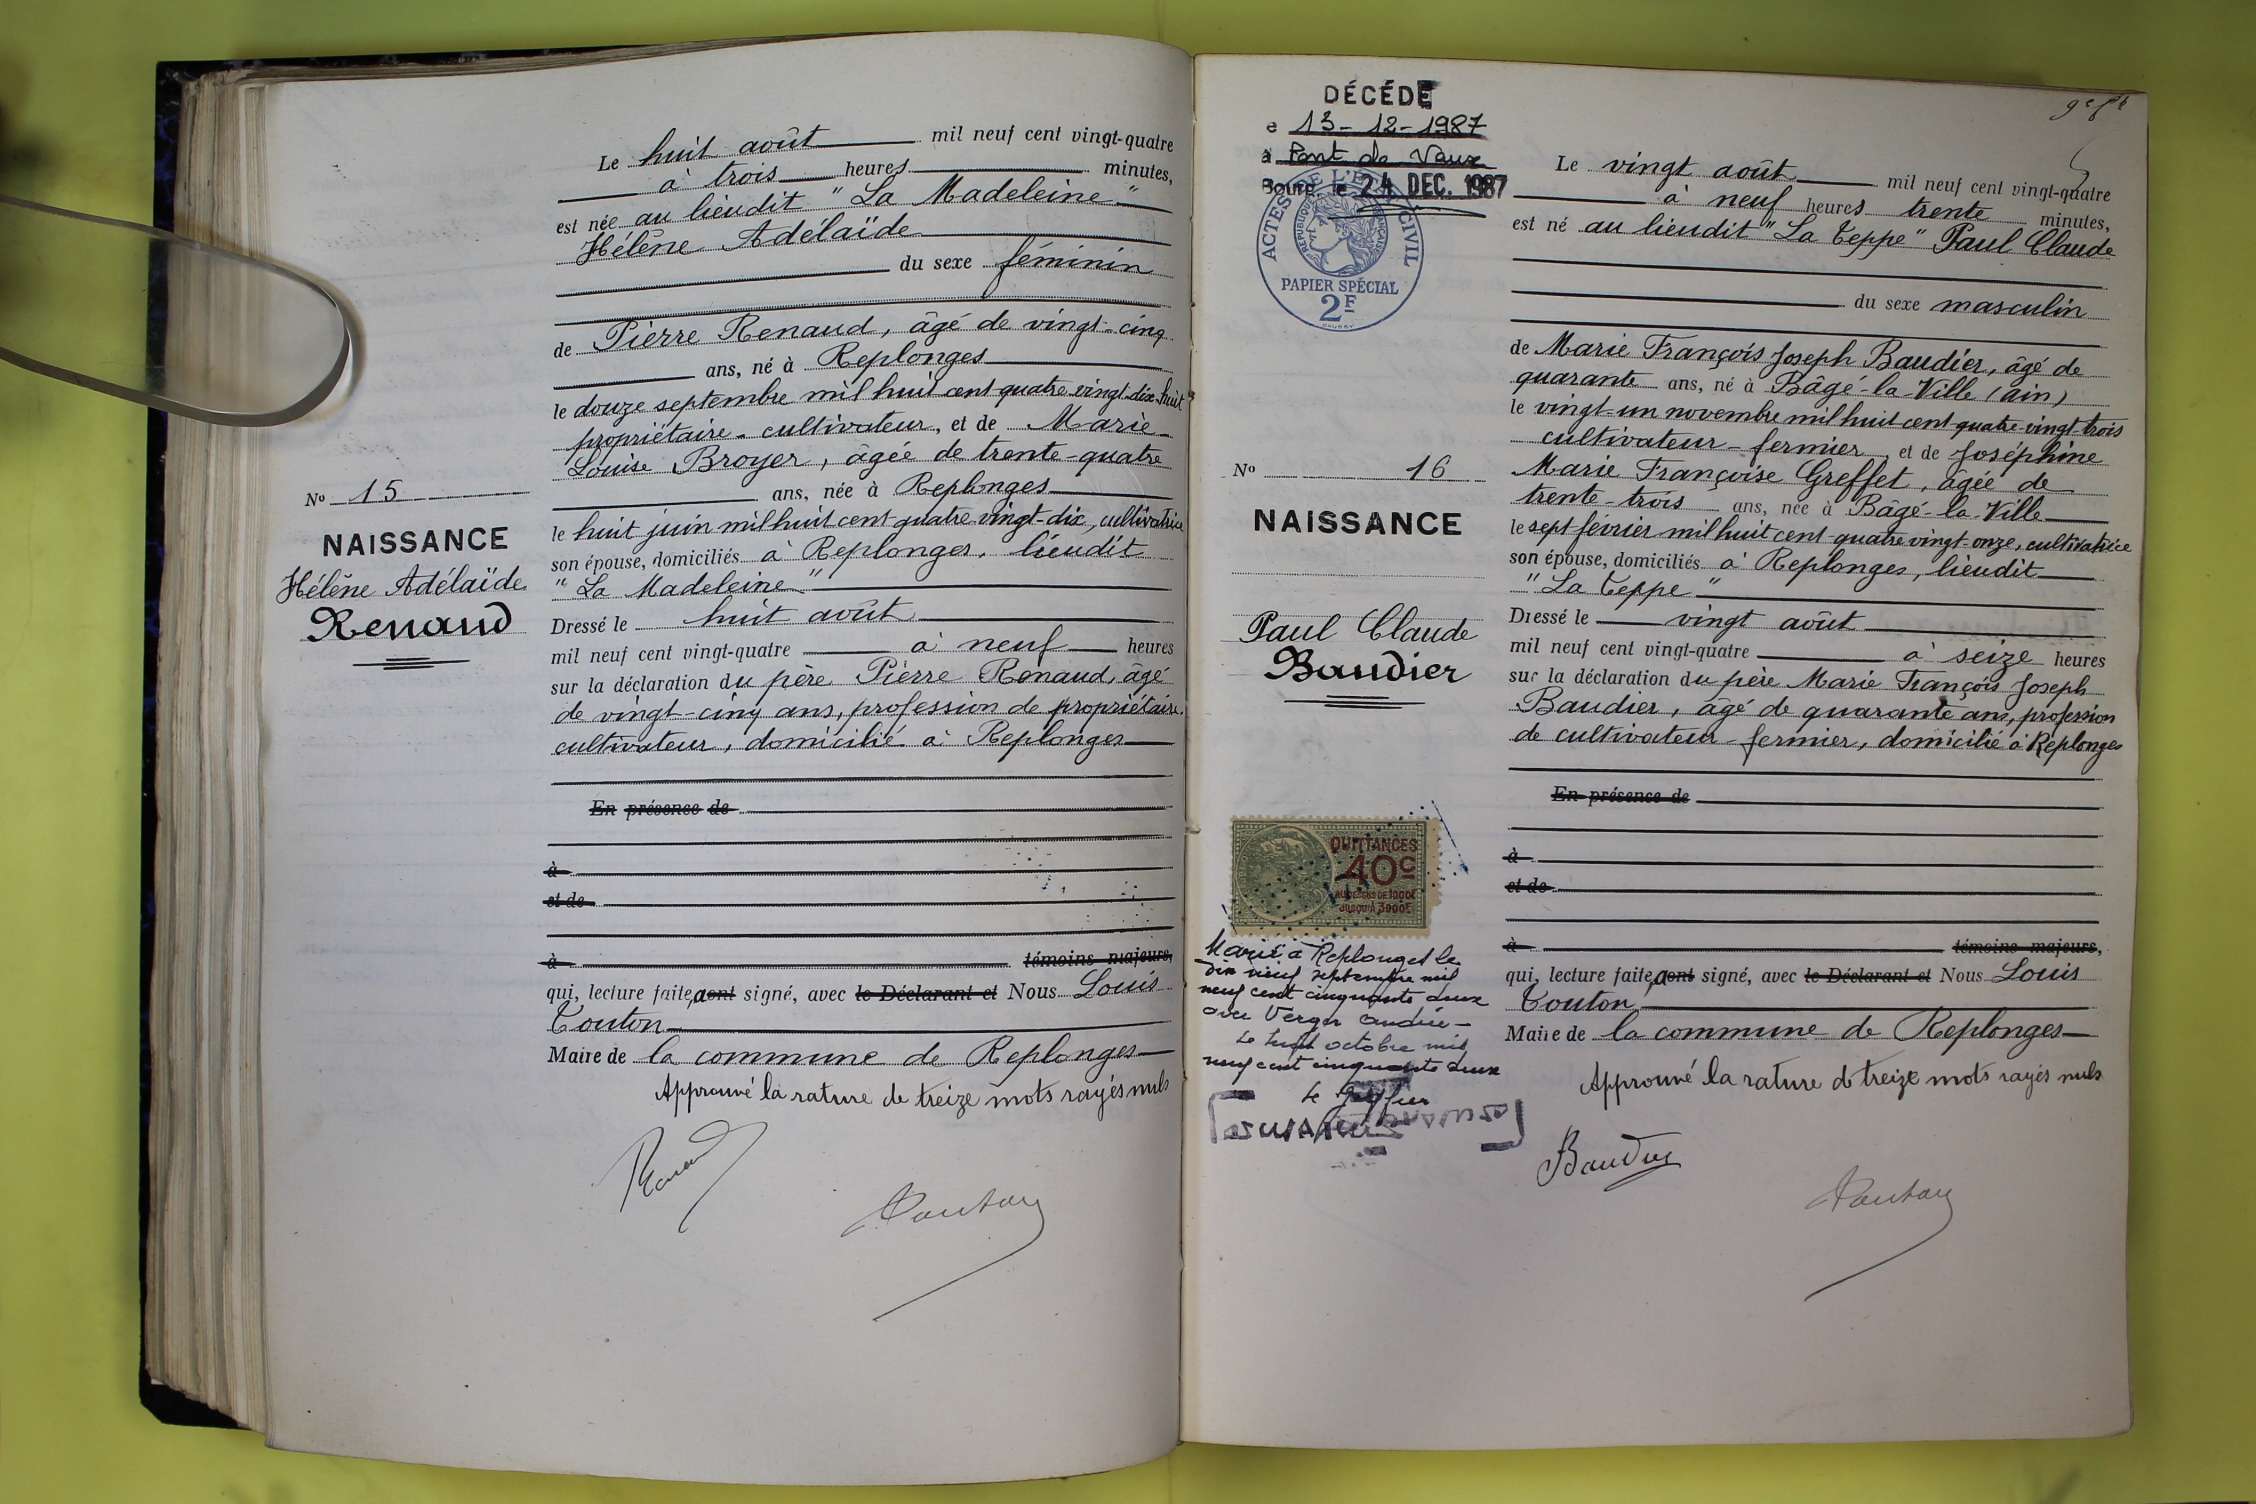 Le huit août mil neuf cent vingt-quatre
à trois heures minutes,
est née au lieudit "La Madeleine"
Hélène Adélaïde
du sexe féminin
de Pierre Renaud, âgé de vingt-cinq
ans, né à Replonges
le douze septembre mil huit cent quatre vingt-dix-huit
propriétaire-cultivateur, et de Marie
Louise Broyer, âgée de trente-quatre
ans, née à Replonges
le huit juin mil huit cent quatre vingt-dix, cultivatrice
son épouse, domiciliés à Replonges, lieudit
"La Madeleine"
Dressé le huit août
mil neuf cent vingt-quatre à neuf heures
sur la déclaration du père Pierre Renaud, âgé
de vingt-cinq ans, profession de propriétaire
cultivateur, domicilié à Replonges
En présence de
à
et de
à témoins majeurs,
qui, lecture faite, a ont signé, avec le Déclarant et Nous Louis
Touton
Maire de la commune de Replonges
Approuvé la rature de treize mots rayés nuls
Renaud
Touton
No 15
NAISSANCE
Hélène Adélaïde
Renaud
DÉCÉDÉ
e 13-12-1987
à Pont de Vaux
Bourg le 24 DEC. 1987
ACTES DE L'ETAT CIVIL
RÉPUBLIQUE FRANÇAISE
PAPIER SPÉCIAL
2F
No 16
NAISSANCE
Paul Claude
Baudier
QUITTANCES
40c
AU DESSUS DE 1000F
JUSQU'À 3000F
Marié à Replonges le
dix neuf septembre mil
neuf cent cinquante deux
avec Verger Andrée
Le huit octobre mil
neuf cent cinquante deux
Le Greffier
Le vingt août mil neuf cent vingt-quatre
à neuf heures trente minutes,
est né au lieudit "La Teppe" Paul Claude
du sexe masculin
de Marie François Joseph Baudier, âgé de
quarante ans, né à Bâgé-la-Ville (ain)
le vingt-un novembre mil huit cent quatre-vingt-trois
cultivateur-fermier, et de Joséphine
Marie Françoise Greffet, âgée de
trente-trois ans, née à Bâgé-la-Ville
le sept février mil huit cent quatre vingt-onze, cultivatrice
son épouse, domiciliés à Replonges, lieudit
"La Teppe"
Dressé le vingt août
mil neuf cent vingt-quatre à seize heures
sur la déclaration du père Marie François Joseph
Baudier, âgé de quarante ans, profession
de cultivateur-fermier, domicilié à Replonges
En présence de
à
et de
à témoins majeurs,
qui, lecture faite, a ont signé, avec le Déclarant et Nous Louis
Touton
Maire de la commune de Replonges
Approuvé la rature de treize mots rayés nuls
Baudier
Touton